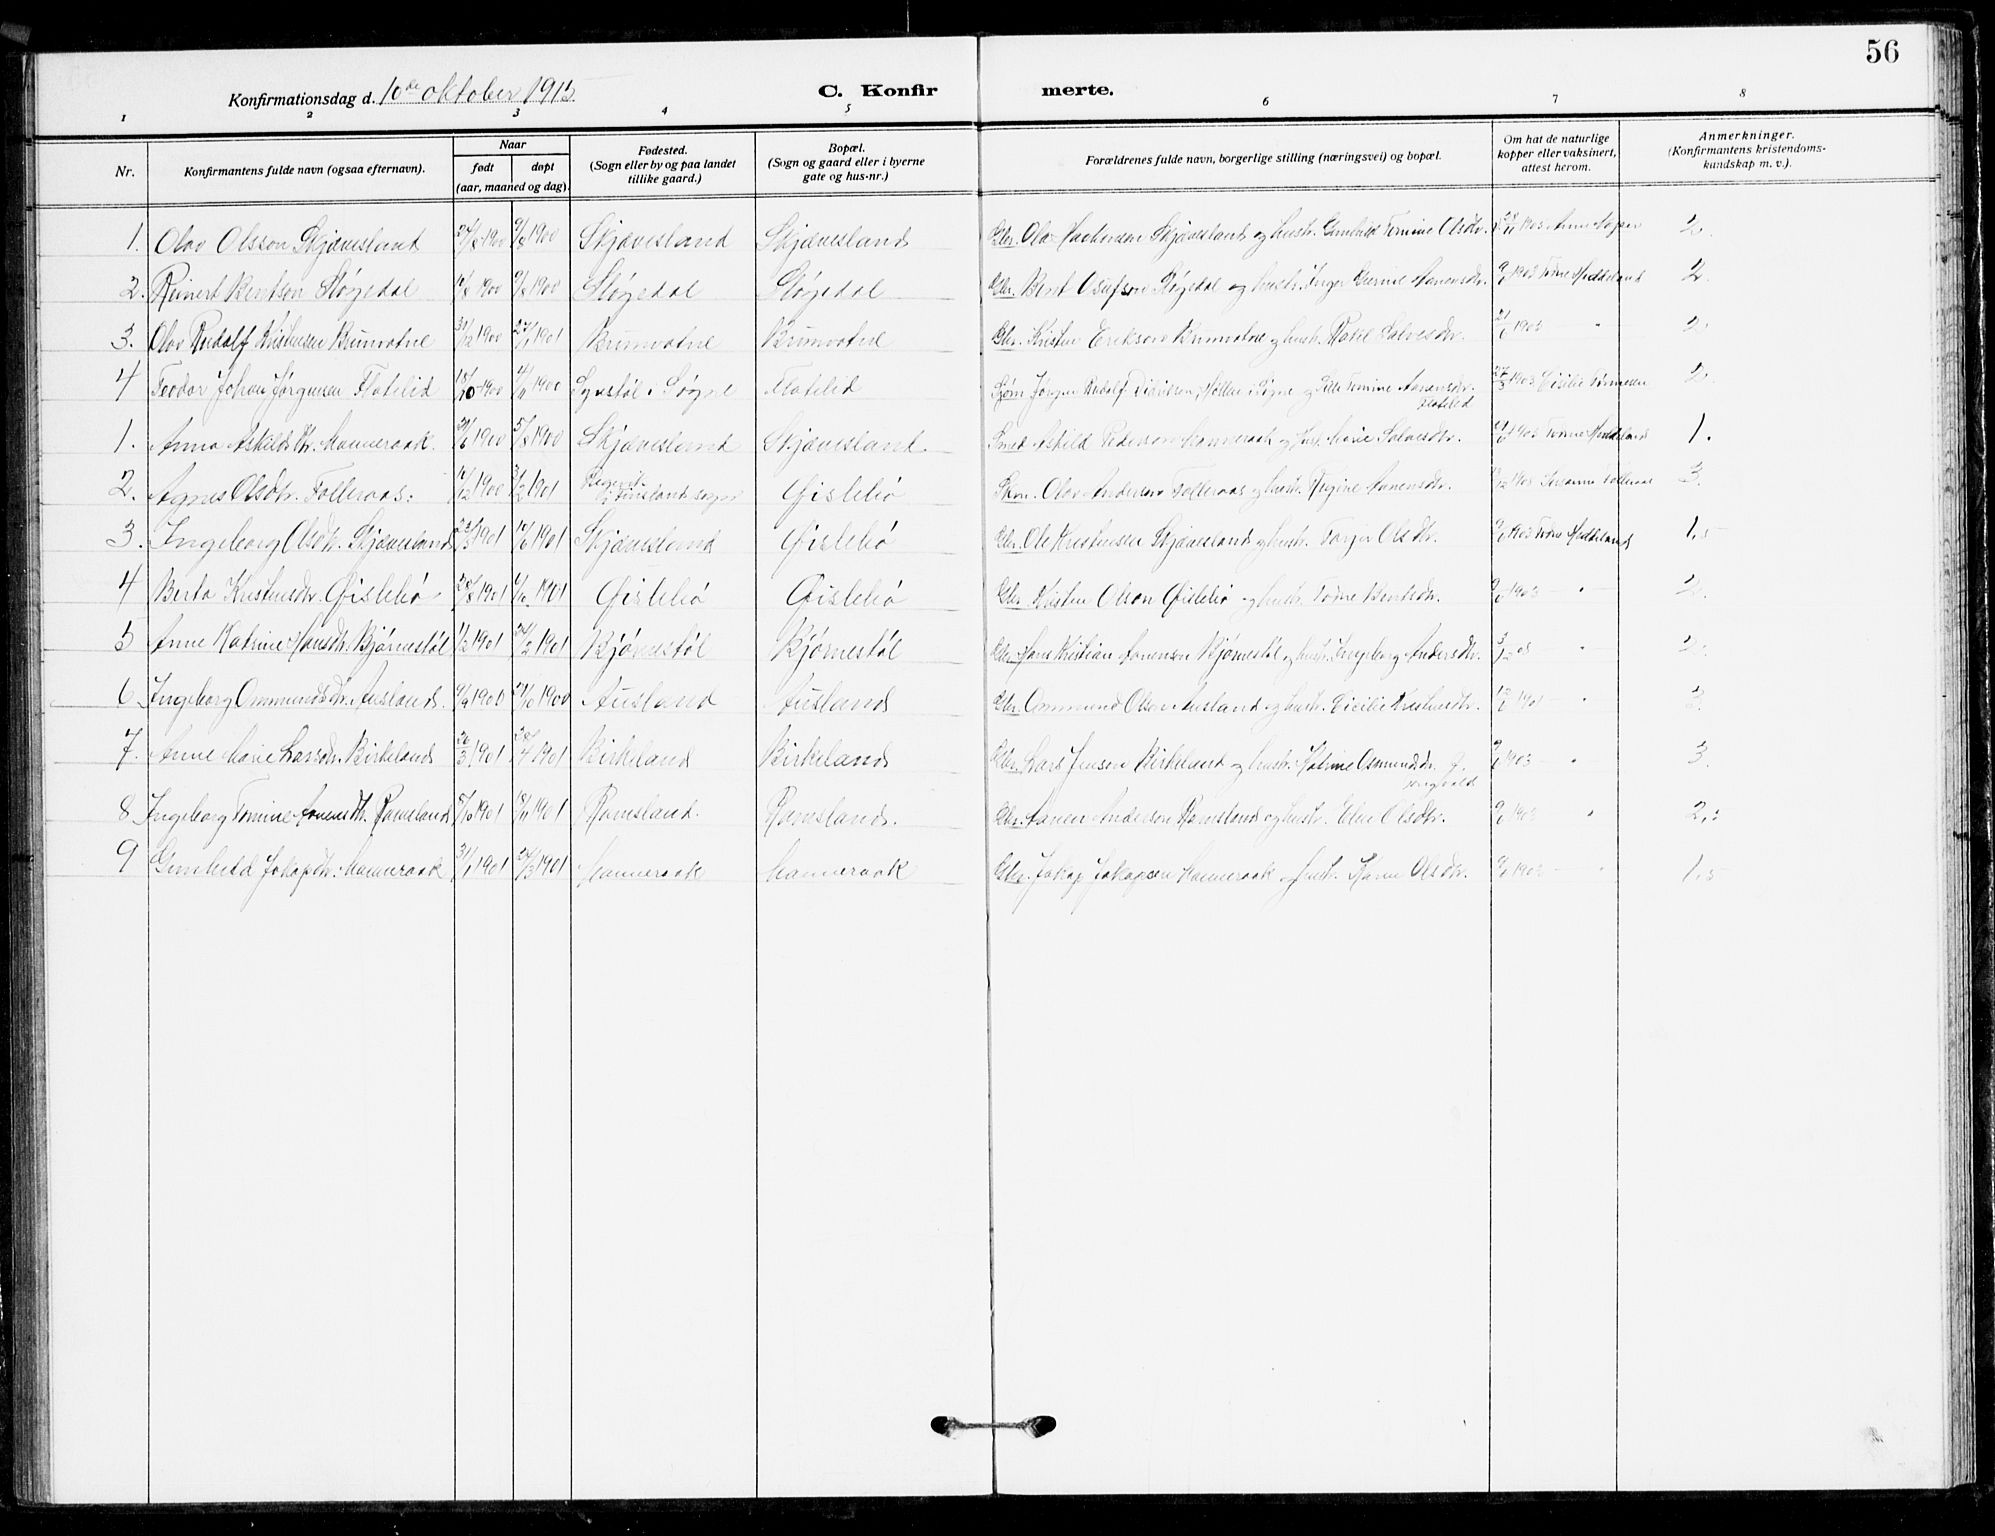 56
Konfirmationsdag d. 10de oktober 1915
C. Konfirmerte.
1 2 3 4 5 6 7 8
Nr. Konfirmantens fulde navn (ogsaa efternavn). Naar født døpt (aar, maaned og dag). Fødested. (Sogn eller by og paa landet tillike gaard.) Bopæl. (Sogn og gaard eller i byerne gate og hus-nr.) Forældrenes fulde navn, borgerlige stilling (næringsvei) og bopæl. Om hat de naturlige kopper eller vaksinert, attest herom. Anmerkninger. (Konfirmantens kristendomskundskap m. v.).
1. Olav Olsson Skjævesland 1900 9/8 1900 Skjævesland Skjævesland Gbr. Ola Skjævesland og hustr. Gunhild Tomine Olsdtr. 1905 Anne 2.
2. Reinert Bentson Støgedal 1900 9/8 1900 Støgedal Støgedal Gbr. Bent Støgedal og hustr. Inger Gurine Aanensdtr. 1903 Todne Meddeland 2.
3. Olav Rudolf Kristensen Brunvatne 31/12 1900 27/1 1901 Brunvatne Brunvatne Gbr. Kristen Erikson Brunvatne og hustr. Rakel Salvesdtr. 2.
4 Teodor Johan Jørgensen Flatelid 1900 1900 i Søgne Flatelid Sjøm. Jørgen Rudolf Didrikson, Møllen i Søgne og Tomine Aanensdtr. Flatelid 27/3 1903 Cisilie Tønnesen 2.
1. Anna Askildsdtr. Manneraak. 1900 5/8 1900 Skjævesland Skjævesland Smed Askild Pederson Manneraak og hust. Marie Salvesdtr. Todne Meddeland 1.
2. Agnes Olsdtr. Tolleraas. 1900 3/2 1901 Øislebø Olav Anderson Tolleraas og hustr. Regine Aanensdtr. 3.
3. Ingeborg Olsdtr. Skjævesland 1901 1901 Skjævesland Øislebø Gbr. Ole Kristensen Skjævesland og hustr. Torjer Olsdtr. 1903 Todne Meddeland 1,5
4 Berta Kristensdtr. Øislebø 1901 1901 Øislebø Øislebø Gbr. Kristen Olson Øislebø og hustr. Todne Bentsdtr. 1903 " 2.
5 Anne Katrine Hansdtr. Bjørnestøl 1/2 1901 24/2 1901 Bjørnestøl Bjørnestøl Gbr. Hans Kristian Aanenson Bjørnestøl og hustr. Ingeborg Andersdtr. " 2.
6. Ingeborg Ommundsdtr. Ausland. 9/9 1900 1900 Ausland Ausland Gbr. Ommund Olson Ausland og hustr. Cicilie Kristensdtr. "
7. Anne Marie Larsdtr. Birkeland 26/3 1901 1901 Birkeland Birkeland Gbr. Lars Jenson Birkeland og hustr. Katrine Osmundsdtr. 1903 " 3.
8 Ingeborg Tomine Aanensdtr. Ramsland 1901 1901 Ramsland. Ramsland. Gbr. Aanen Anderson Ramsland og hustr. Elen Olsdtr. 1903 "
9 Gunhild Jakopsdtr. Manneraak 31/1 1901 24/3 1901 Manneraak Manneraak Gbr. Jakop Jakopsen Manneraak og hustr. Karen Olsdtr. " 1,5